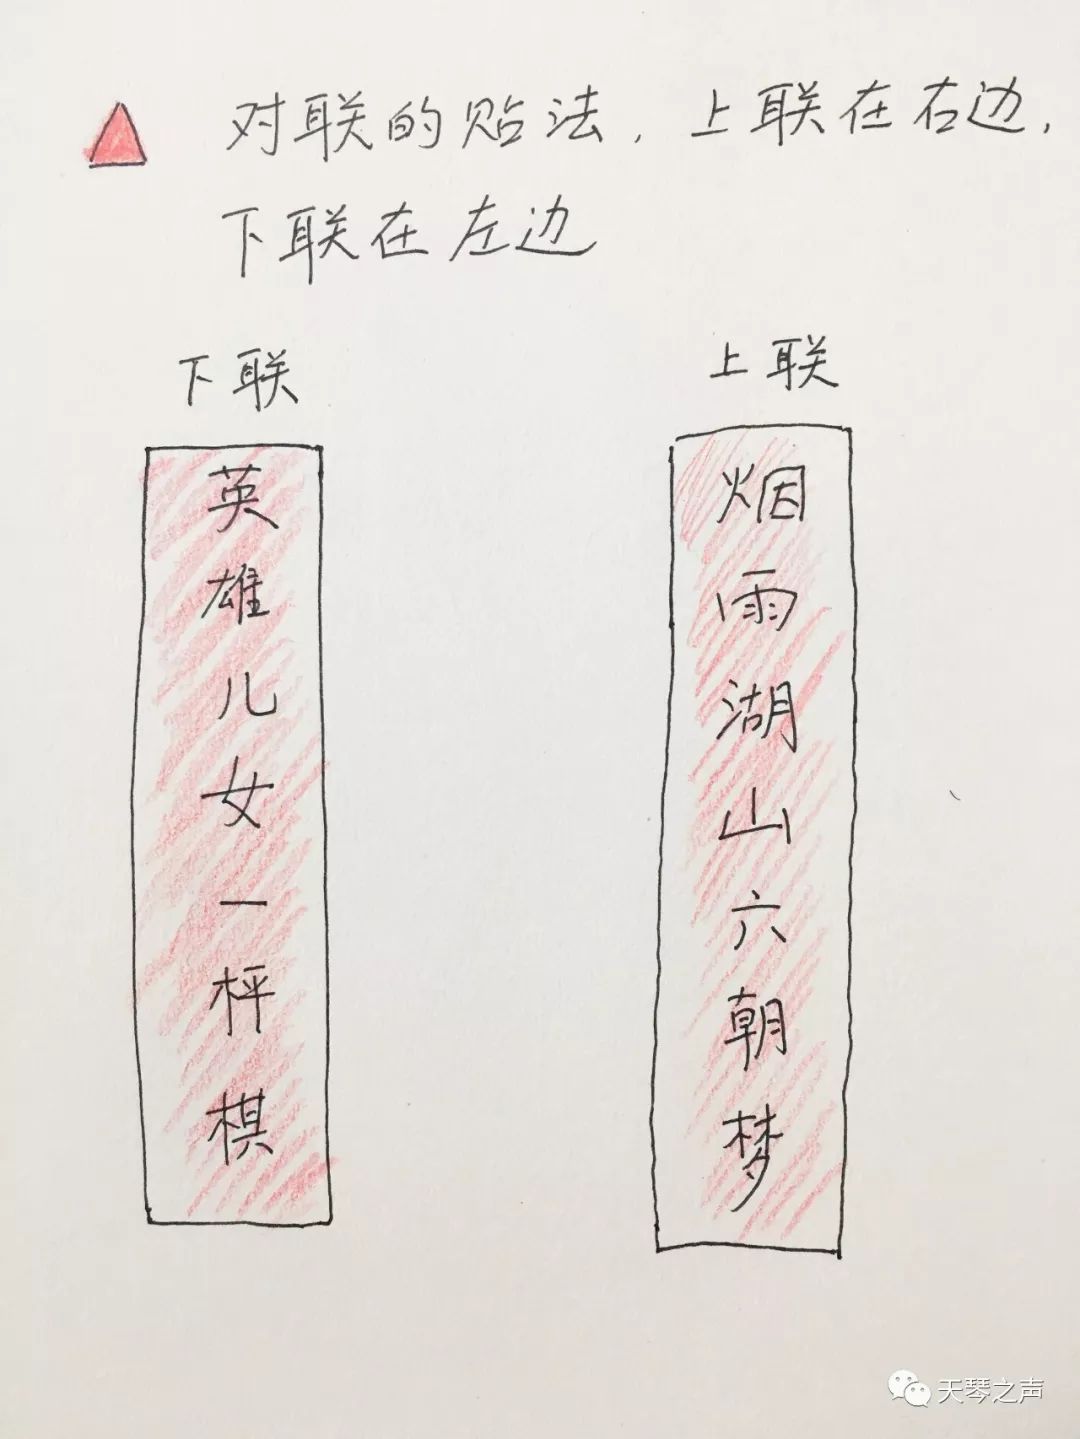 对联的贴法，上联在右边，
下联在左边
下联
上联
英雄儿女一枰棋
烟雨湖山六朝梦
天琴之声